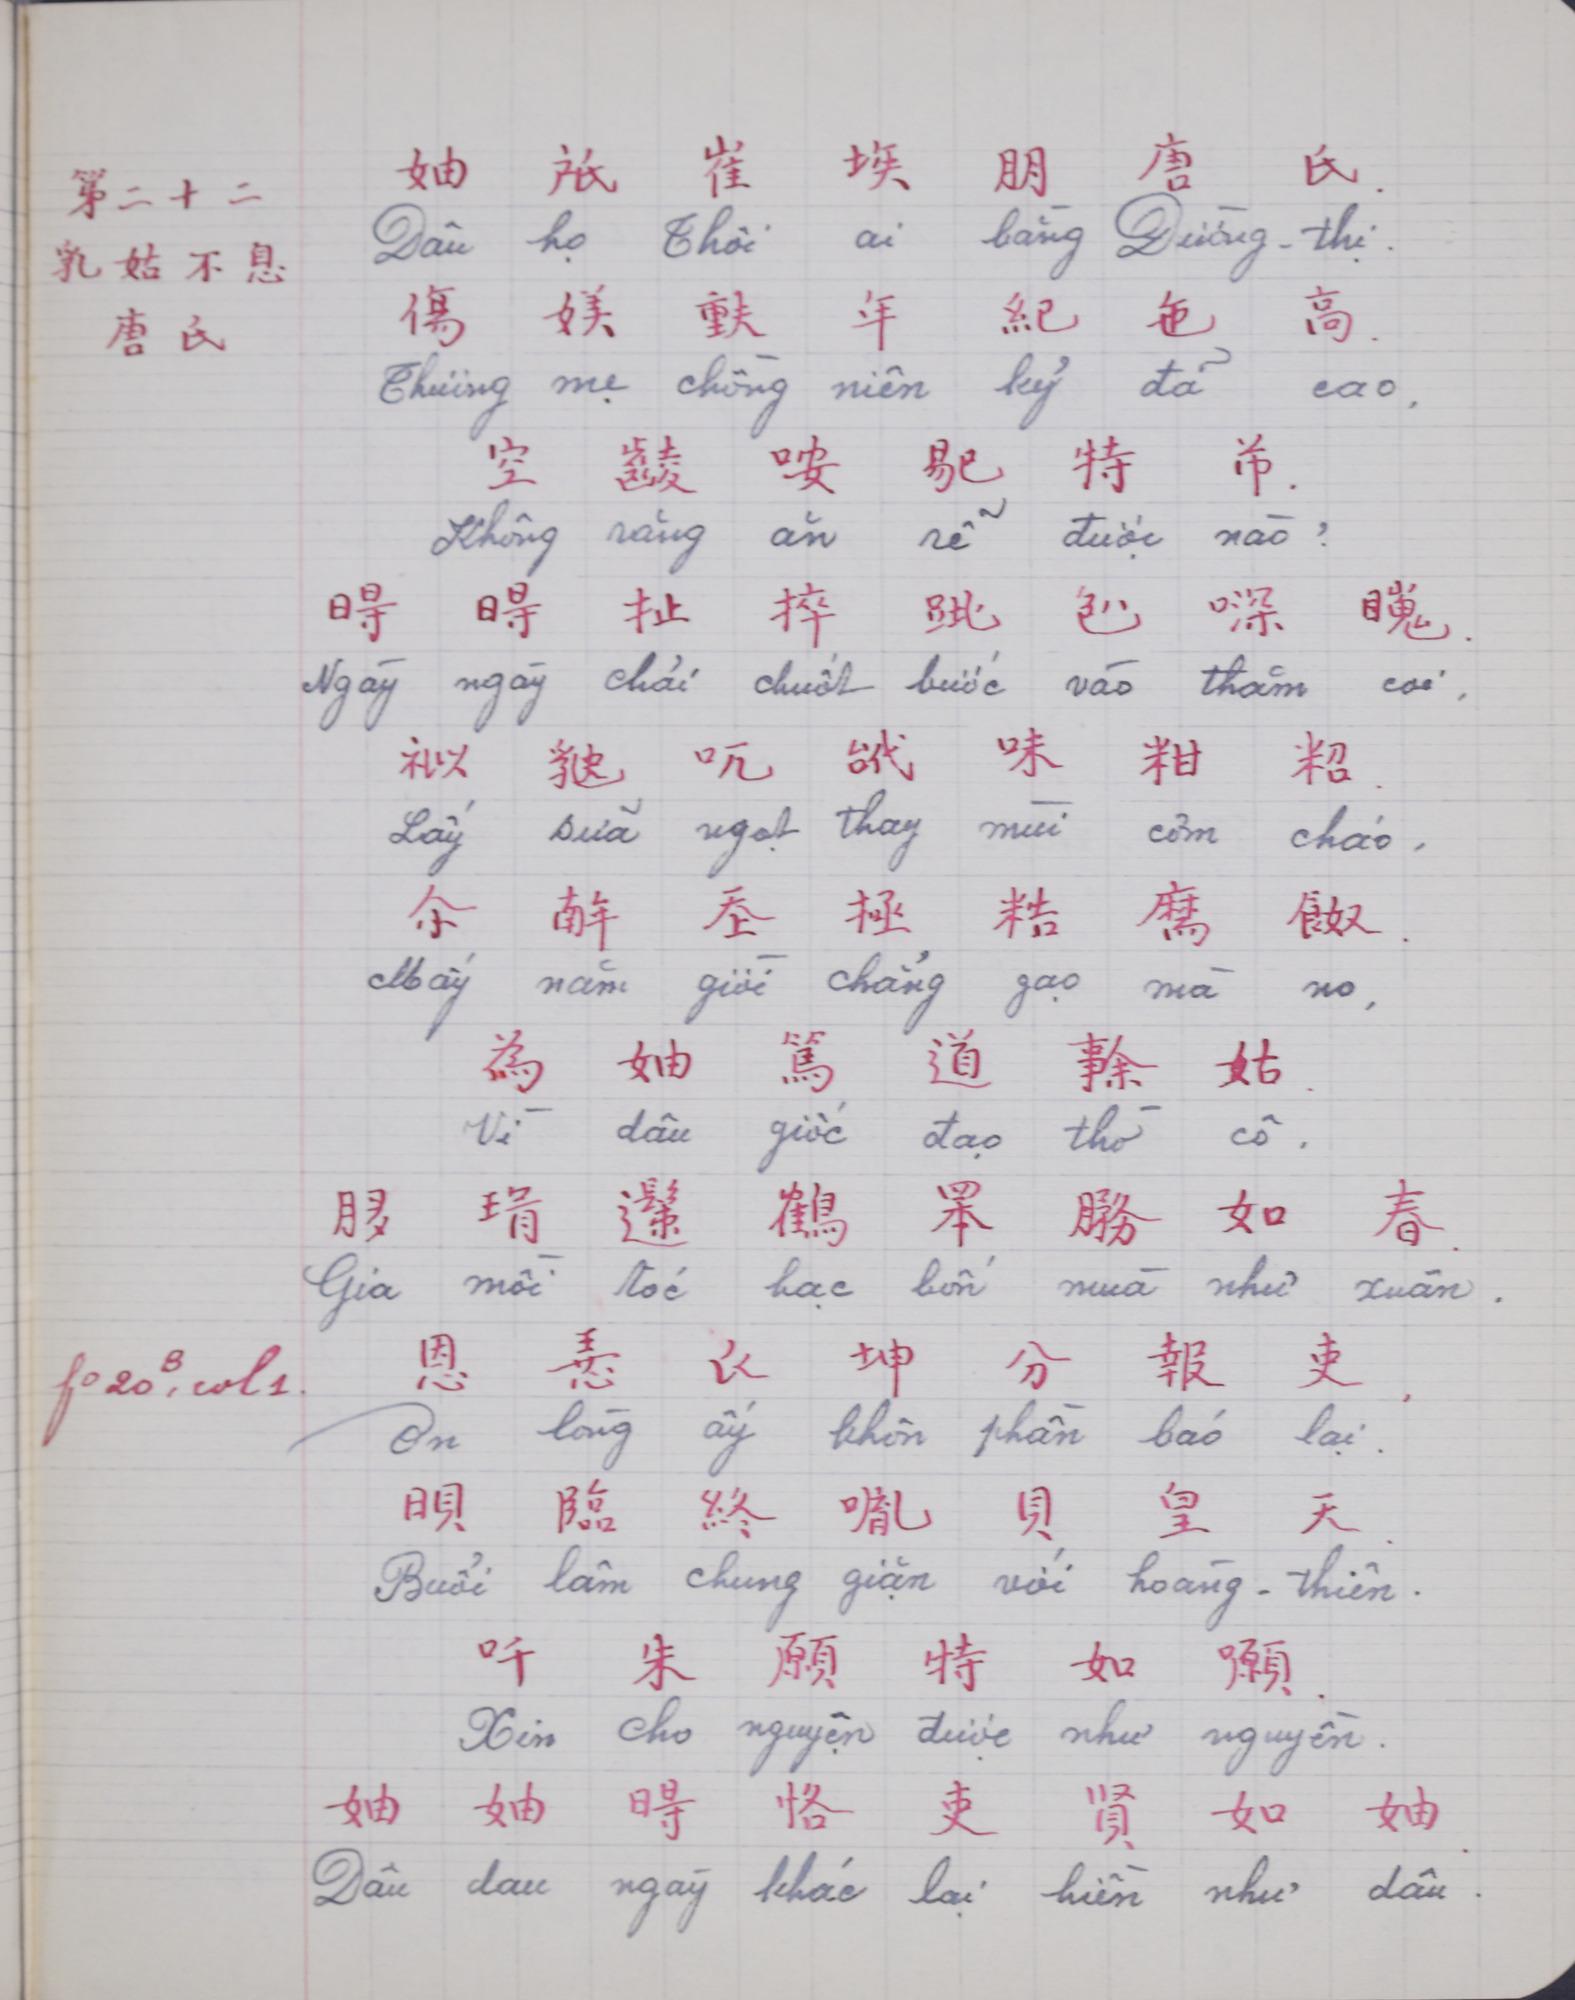 第二十二
乳姑不息
唐氏
妯 𢩜 崔 埃 朋 唐 氏.
Dâu họ Thôi ai bằng Đường-thị.
傷 媄 𫯳 年 紀 㐌 高.
Thương mẹ chồng niên kỷ đã cao,
空 𪘵 咹 𥚯 特 芇.
Không răng ăn rễ được nào?
𣈜 𣈜 扯 捽 𨀈 𠓨 𠽄 𥋳.
Ngày ngày chải chuốt bước vào thăm coi,
𥙩 𣷱 吭 台 味 粓 粥.
Lấy sữa ngọt thay mùi cơm cháo,
余 𢆥 丕 拯 𥽌 麻 𩛂.
Mấy năm giời chẳng gạo mà no,
為 妯 篤 道 𠄜 姑.
Vì dâu giốc đạo thờ cô.
Gia mồi tóc hạc bốn mùa như xuân.
fo 20 B, col 1.
恩 𢚸 𧘇 坤 分 報 吏,
Ơn lòng ấy khôn phần báo lại.
𣇜 臨 終 𠴔 貝 皇 天.
Buổi lâm chung giặn với hoàng-thiên.
吀 朱 願 特 如 願.
Xin cho nguyện được như nguyền.
妯 妯 𣈜 恪 吏 賢 如 妯.
Dâu dau ngày khác lại hiền như dâu.